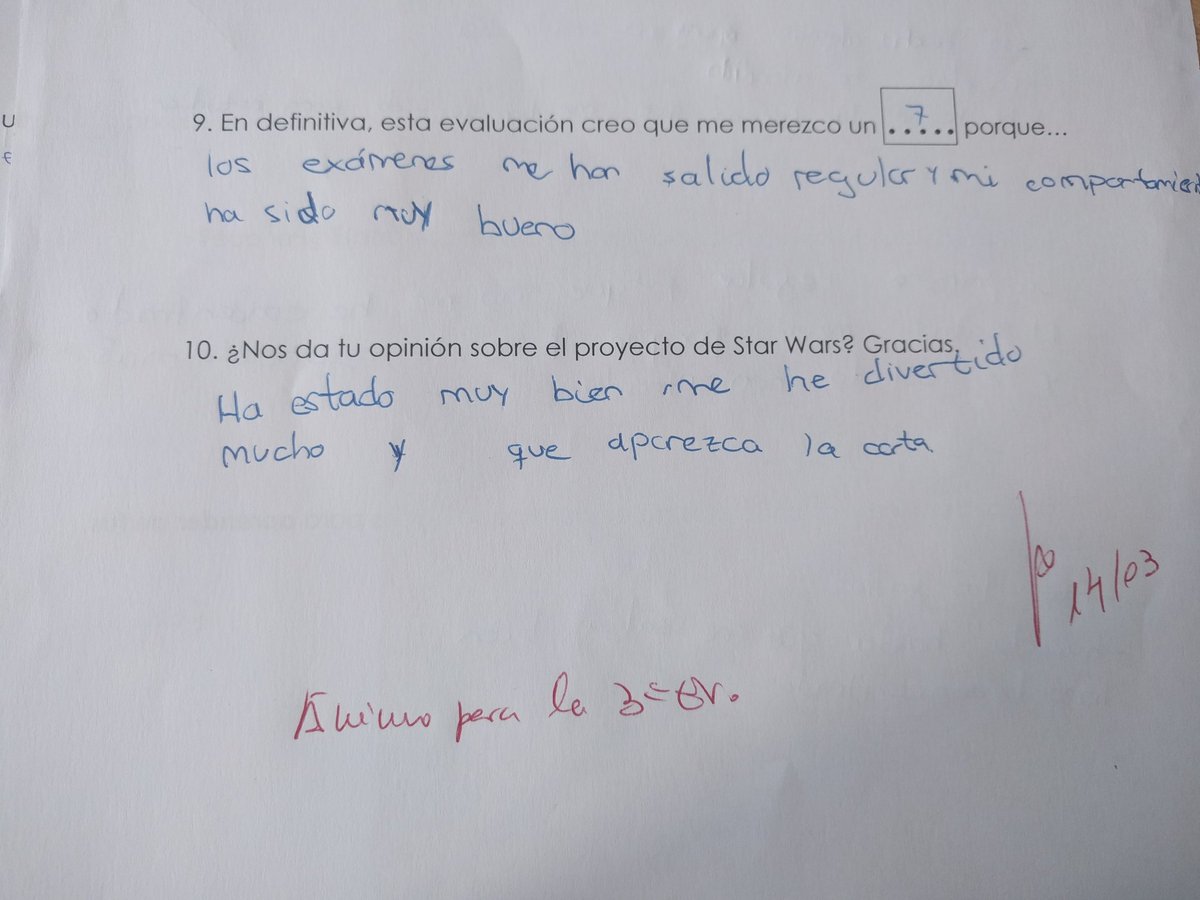 U
€
9. En definitiva, esta evaluación creo que me merezco un 7 ..... porque...
los exámenes me han salido regular y mi comportamient
ha sido muy bueno
10. ¿Nos da tu opinión sobre el proyecto de Star Wars? Gracias.
Ha estado muy bien, me he divertido
mucho y que aparezca la carta
14/03
Ánimo para la 3ª ev.